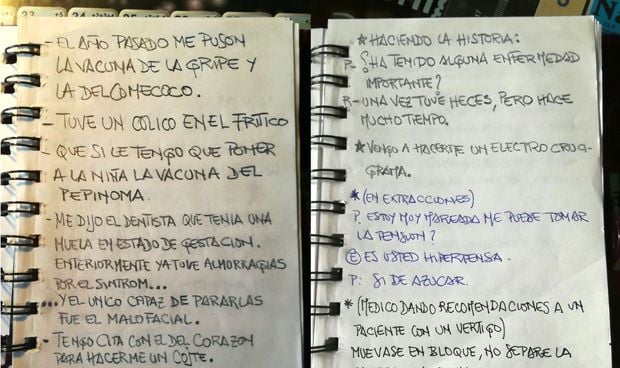 - EL AÑO PASADO ME PUSON
LA VACUNA DE LA GRIPE Y
LA DEL COMECOCO.
- TUVE UN COLICO EN EL FRITICO
- QUE SI LE TENGO QUE PONER
A LA NIÑA LA VACUNA DEL
PEPINOMA.
- ME DIJO EL DENTISTA QUE TENIA UNA
MUELA EN ESTADO DE GESTACION.
ENTERIORMENTE YA TUVE ALMORRAGIAS
POR EL SINTROM...
...Y EL UNICO CAPAZ DE PARARLAS
FUE EL MALOFACIAL.
- TENGO CITA CON EL DEL CORAZON
PARA HACERME UN COJTE.
* HACIENDO LA HISTORIA:
P- ¿HA TENIDO ALGUNA ENFERMEDAD
IMPORTANTE?
R- UNA VEZ TUVE HECES, PERO HACE
MUCHO TIEMPO.
* VENGO A HACERTE UN ELECTRO CRUCI-
GRAMA.
* (EN EXTRACCIONES)
P. ESTOY MUY MAREADA ME PUEDE TOMAR
LA TENSION?
E ES USTED HIPERTENSA.
P: SI DE AZUCAR.
* (MEDICO DANDO RECOMENDACIONES A UN
PACIENTE CON UN VERTIGO)
MUEVASE EN BLOQUE, NO SEPARE LA